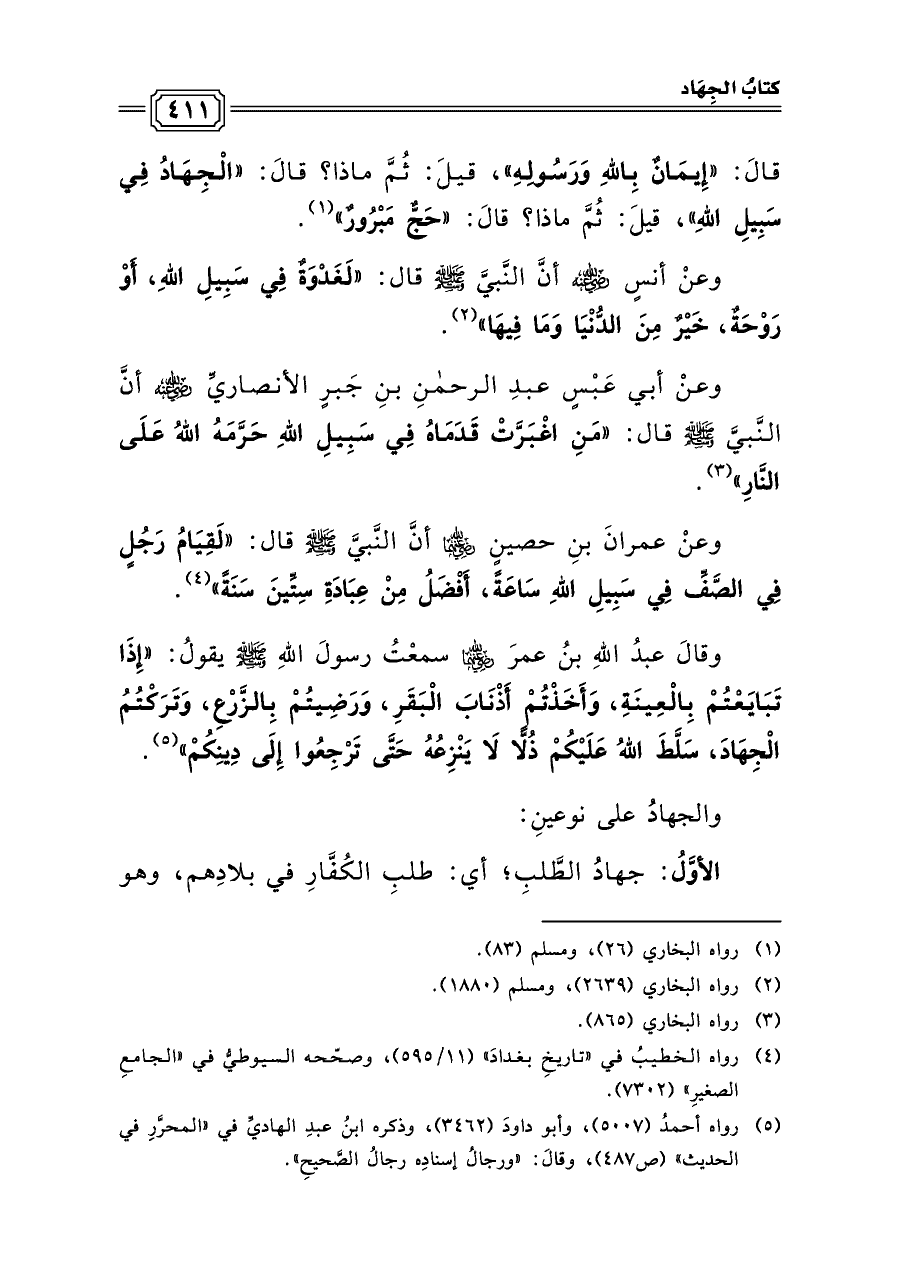 كتابُ الجِهَاد
٤١١
قالَ: «إِيمَانٌ بِاللهِ وَرَسُولِهِ»، قيلَ: ثُمَّ ماذا؟ قالَ: «الْجِهَادُ فِي
سَبِيلِ اللهِ»، قيلَ: ثُمَّ ماذا؟ قالَ: «حَجٌّ مَبْرُورٌ»(١).
وعنْ أنسٍ رضي الله عنه أنَّ النَّبيَّ ﷺ قال: «لَغَدْوَةٌ فِي سَبِيلِ اللهِ، أَوْ
رَوْحَةٌ، خَيْرٌ مِنَ الدُّنْيَا وَمَا فِيهَا»(٢).
وعنْ أبي عَبْسٍ عبدِ الرحمٰنِ بنِ جَبرٍ الأنصاريِّ رضي الله عنه أنَّ
النَّبيَّ ﷺ قال: «مَنِ اغْبَرَّتْ قَدَمَاهُ فِي سَبِيلِ اللهِ حَرَّمَهُ اللهُ عَلَى
النَّارِ»(٣).
وعنْ عمرانَ بنِ حصينٍ رضي الله عنهما أنَّ النَّبيَّ ﷺ قال: «لَقِيَامُ رَجُلٍ
فِي الصَّفِّ فِي سَبِيلِ اللهِ سَاعَةً، أَفْضَلُ مِنْ عِبَادَةِ سِتِّينَ سَنَةً»(٤).
وقالَ عبدُ اللهِ بنُ عمرَ رضي الله عنهما سمعْتُ رسولَ اللهِ ﷺ يقولُ: «إِذَا
تَبَايَعْتُمْ بِالْعِينَةِ، وَأَخَذْتُمْ أَذْنَابَ الْبَقَرِ، وَرَضِيتُمْ بِالزَّرْعِ، وَتَرَكْتُمُ
الْجِهَادَ، سَلَّطَ اللهُ عَلَيْكُمْ ذُلًّا لَا يَنْزِعُهُ حَتَّى تَرْجِعُوا إِلَى دِينِكُمْ»(٥).
والجهادُ على نوعينِ:
الأوَّلُ: جهادُ الطَّلبِ؛ أي: طلبِ الكُفَّارِ في بلادِهم، وهو
(١) رواه البخاري (٢٦)، ومسلم (٨٣).
(٢) رواه البخاري (٢٦٣٩)، ومسلم (١٨٨٠).
(٣) رواه البخاري (٨٦٥).
(٤) رواه الخطيبُ في «تاريخِ بغدادَ» (٥٩٥/١١)، وصحّحه السيوطيُّ في «الجامعِ
الصغيرِ» (٧٣٠٢).
(٥) رواه أحمدُ (٥٠٠٧)، وأبو داودَ (٣٤٦٢)، وذكره ابنُ عبدِ الهاديِّ في «المحرَّرِ في
الحديث» (ص٤٨٧)، وقالَ: «ورجالُ إسنادِه رجالُ الصَّحيحِ».